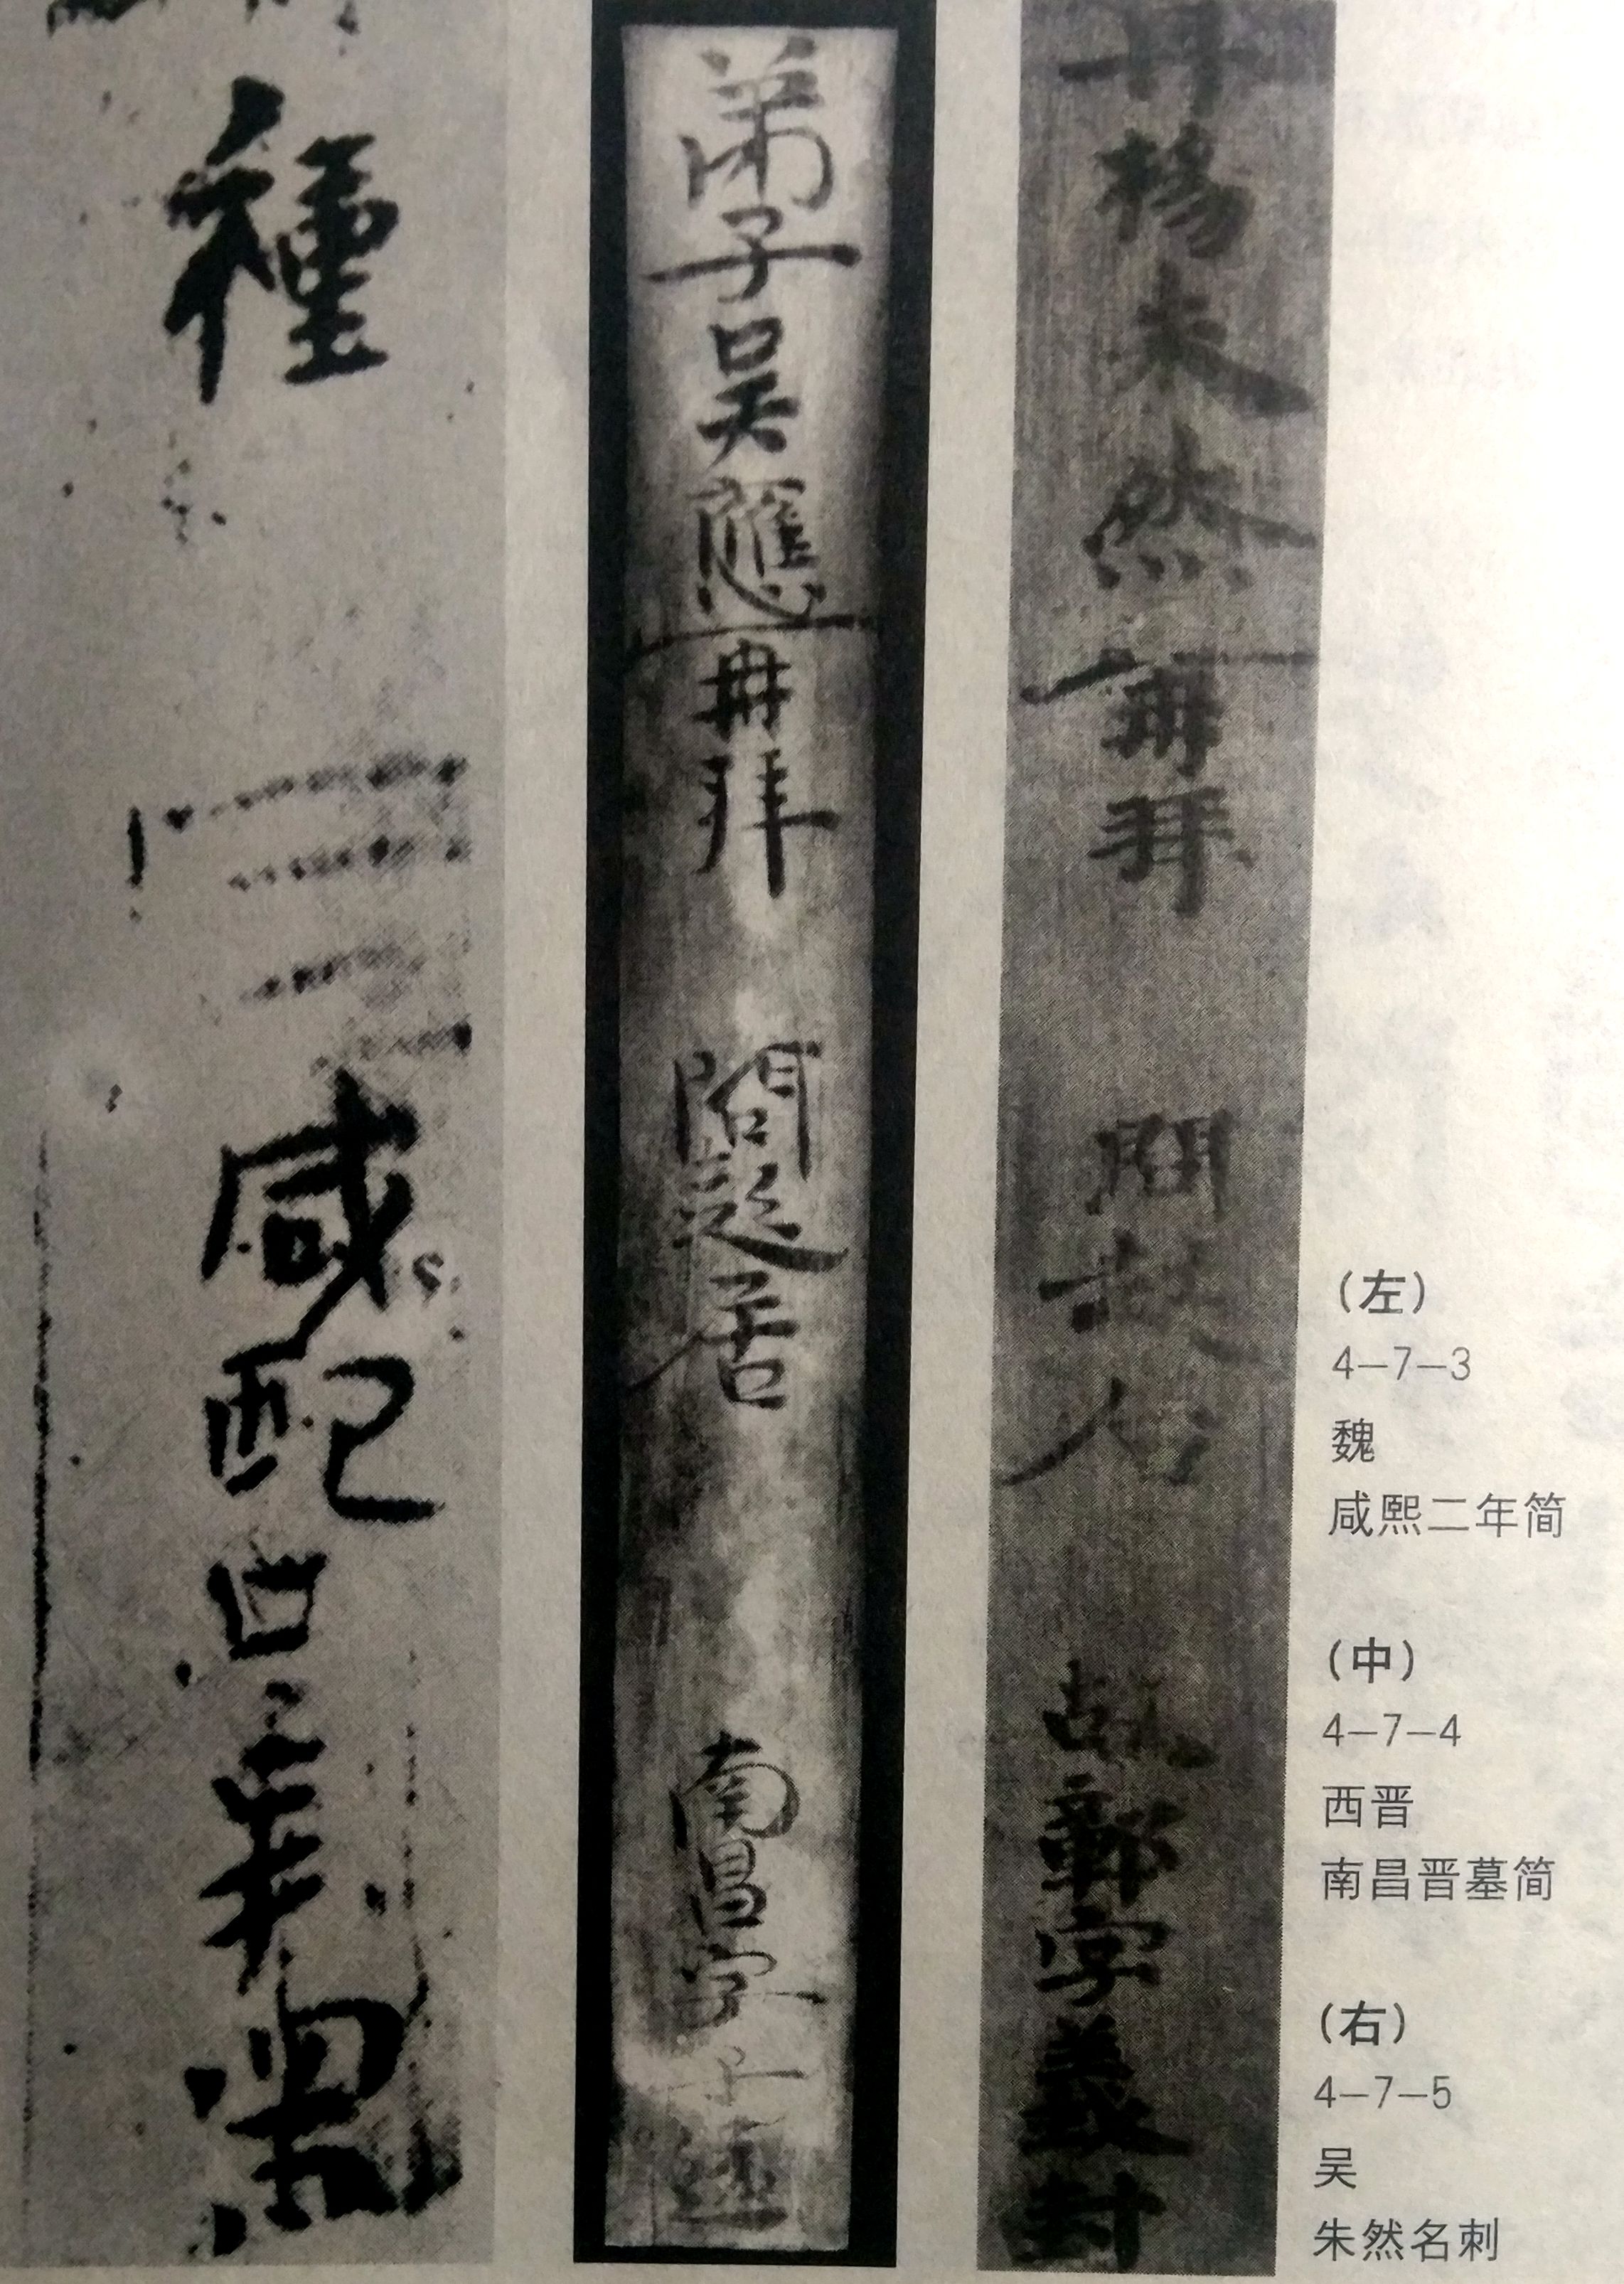 丹楊朱然再拜 問起居 故鄣字義封
弟子吳應再拜 問起居 南昌字子遠
種
咸
（左）
4—7—3
魏
咸熙二年简
（中）
4—7—4
西晋
南昌晋墓简
（右）
4—7—5
吴
朱然名刺